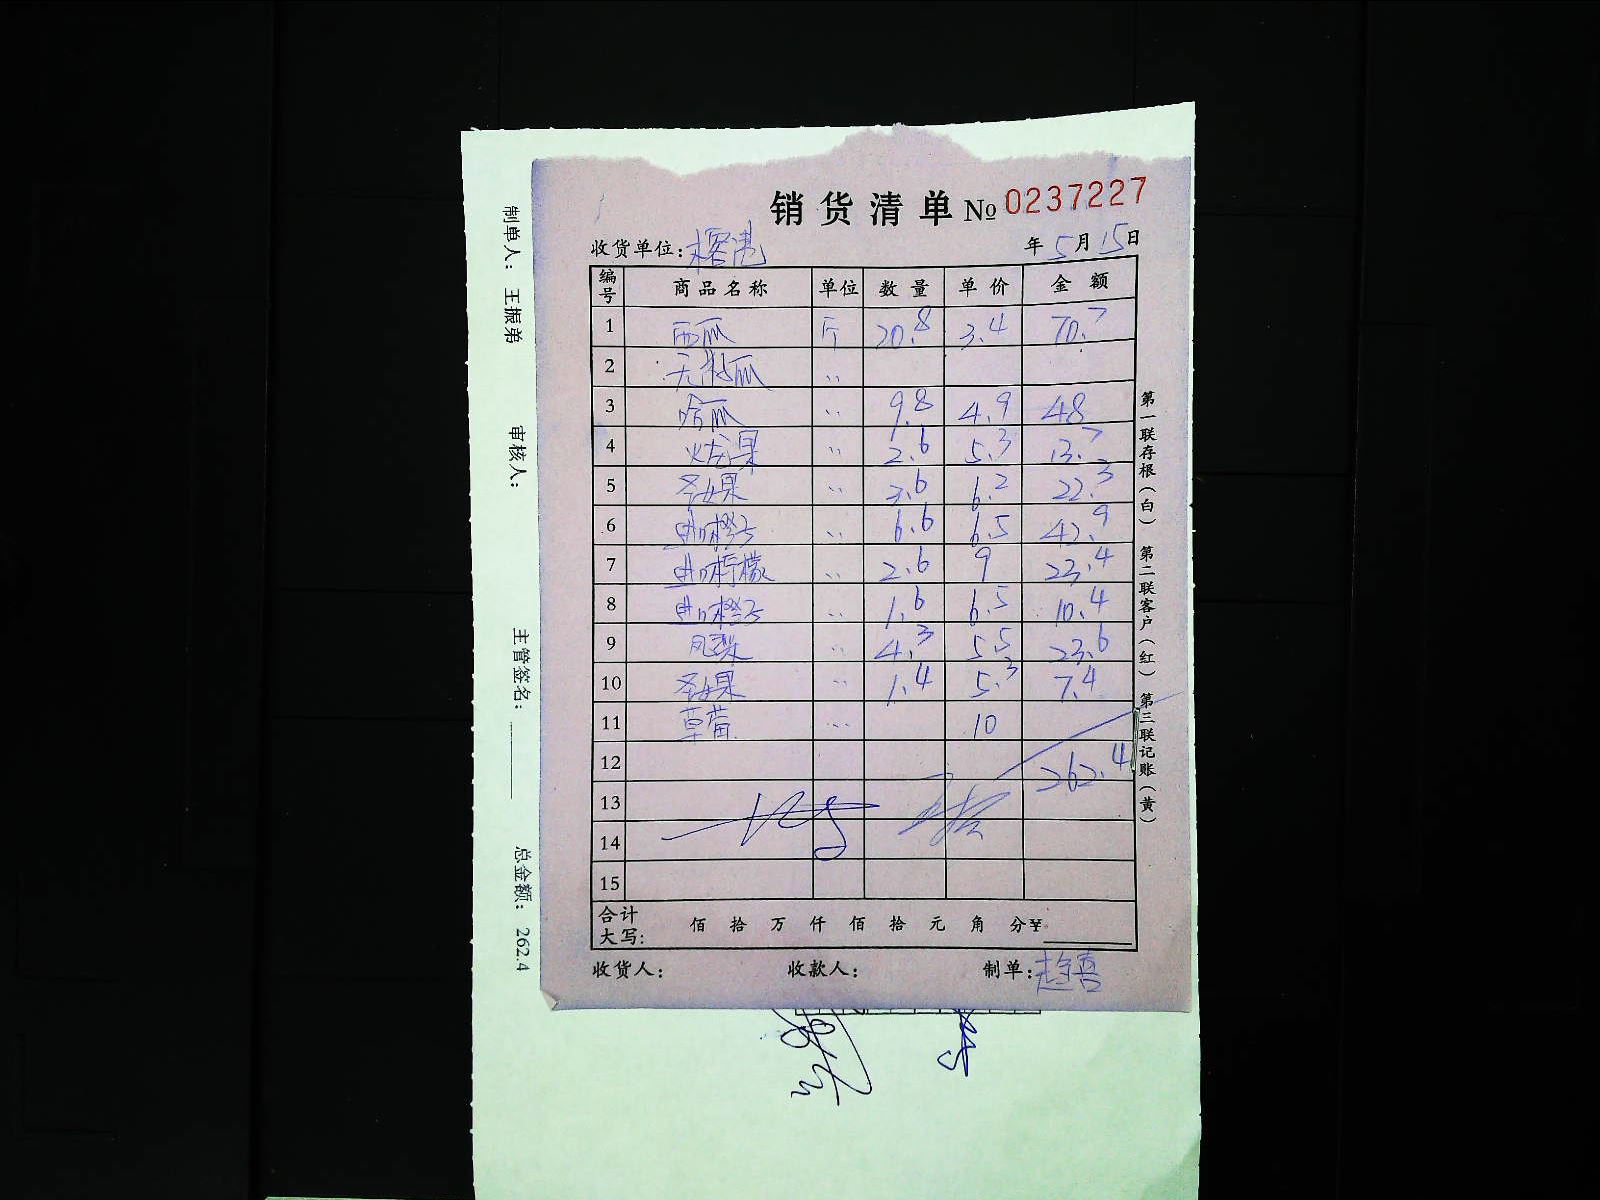 销货清单 No 0237227
收货单位: 年 5 月 15 日
编号 商品名称 单位 数量 单价 金额
1 西瓜 斤 20.8 3.4 70.7
2 无籽瓜 ..
3 哈瓜 .. 9.8 4.9 48
4 火龙果 .. 2.6 5.3 13.7
5 圣女果 .. 3.6 6.2 22.3
6 进口橙子 .. 6.6 6.5 42.9
7 进口柠檬 .. 2.6 9 23.4
8 进口橙子 .. 1.6 6.5 10.4
9 凤梨 .. 4.3 5.5 23.6
10 圣女果 .. 1.4 5.3 7.4
11 草莓 ... 10
12 262.4
13
14
15
合计大写: 佰 拾 万 仟 佰 拾 元 角 分 ¥
收货人: 收款人: 制单:
第一联存根(白) 第二联客户(红) 第三联记账(黄)
制单人: 王振弟 审核人: 主管签名: 总金额: 262.4